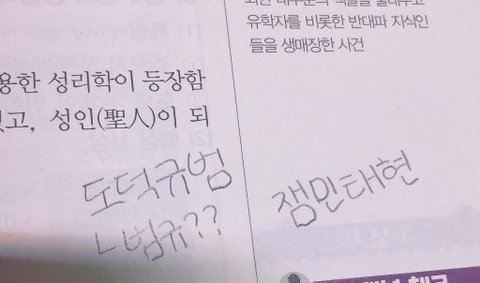 유학자를 비롯한 반대파 지식인
들을 생매장한 사건
용한 성리학이 등장함
고, 성인(聖人)이 되
도덕규범
ㄴ 범규??
잼민태현